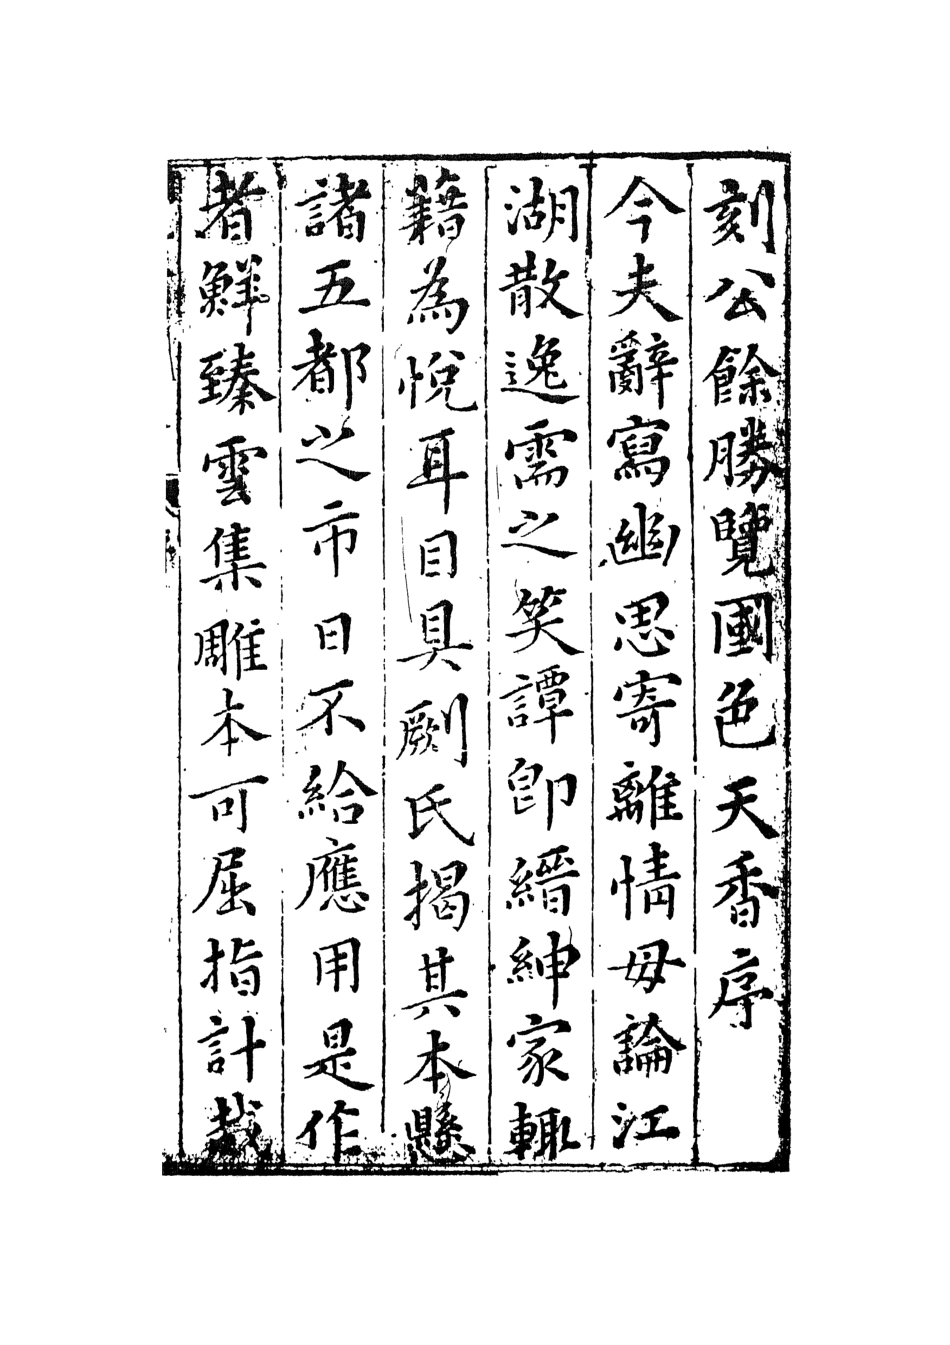 刻公餘勝覽國色天香序
今夫辭寫幽思寄離情毋論江
湖散逸需之笑譚即縉紳家輒
藉為悅耳目具劂氏揭其本懸
諸五都之市日不給應用是作
者鮮臻雲集雕本可屈指計哉